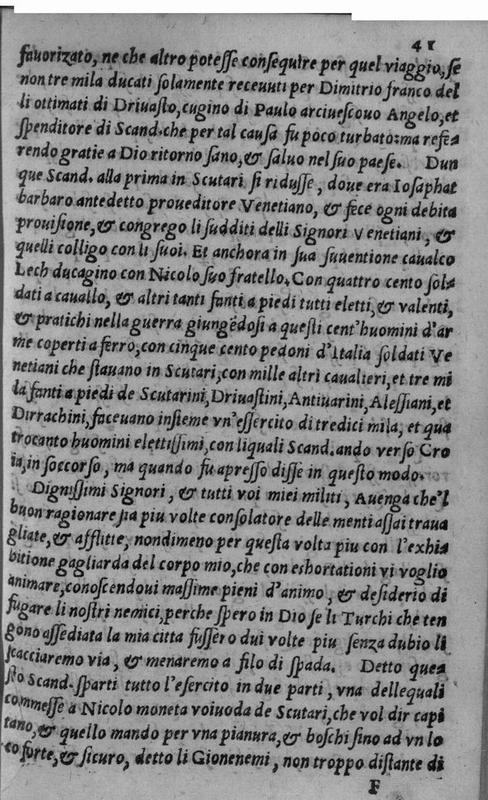 41
fauorizato, ne che altro potesse consequire per quel viaggio, se
non tre mila ducati solamente receuuti per Dimitrio franco del
li ottimati di Driuasto, cugino di Paulo arciuescouo Angelo, et
spenditore di Scand. che per tal causa fu poco turbato: ma refe=
rendo gratie a Dio ritorno sano, & saluo nel suo paese. Dun
que Scand. alla prima in Scutari si ridusse, doue era Iosaphat
barbaro antedetto proueditore Venetiano, & fece ogni debita
prouisione, & congrego li sudditi delli Signori Venetiani, &
quelli colligo con li suoi. Et anchora in sua suuentione caualco
Lech ducagino con Nicolo suo fratello. Con quattro cento sol=
dati a cauallo, & altri tanti fanti a piedi tutti eletti, & valenti,
& pratichi nella guerra giungēdosi a questi cent'huomini d'ar
me coperti a ferro, con cinque cento pedoni d'Italia soldati Ve
netiani che stauano in Scutari, con mille altri caualieri, et tre mi
la fanti a piedi de Scutarini, Driuastini, Antiuarini, Alessiani, et
Dirrachini, faceuano insieme vn'essercito di tredici mila, et qua
trocanto huomini elettissimi, con liquali Scand. ando verso Cro
ia, in soccorso, ma quando fu apresso disse in questo modo.
Dignissimi Signori, & tutti voi miei militi, Auenga che'l
buon ragionare sia piu volte consolatore delle menti assai traua
gliate, & afflitte, nondimeno per questa volta piu con l'exhi=
bitione gagliarda del corpo mio, che con eshortationi vi voglio
animare, conoscendoui massime pieni d'animo, & desiderio di
fugare li nostri nemici, perche spero in Dio se li Turchi che ten
gono assediata la mia citta fussero dui volte piu senza dubio li
scacciaremo via, & menaremo a filo di spada. Detto que=
sto Scand. sparti tutto l'esercito in due parti, vna dellequali
commesse a Nicolo moneta voiuoda de Scutari, che vol dir capi
tano, & quello mando per vna pianura, & boschi sino ad vn lo
co forte, & sicuro, detto li Gionenemi, non troppo distante di
F